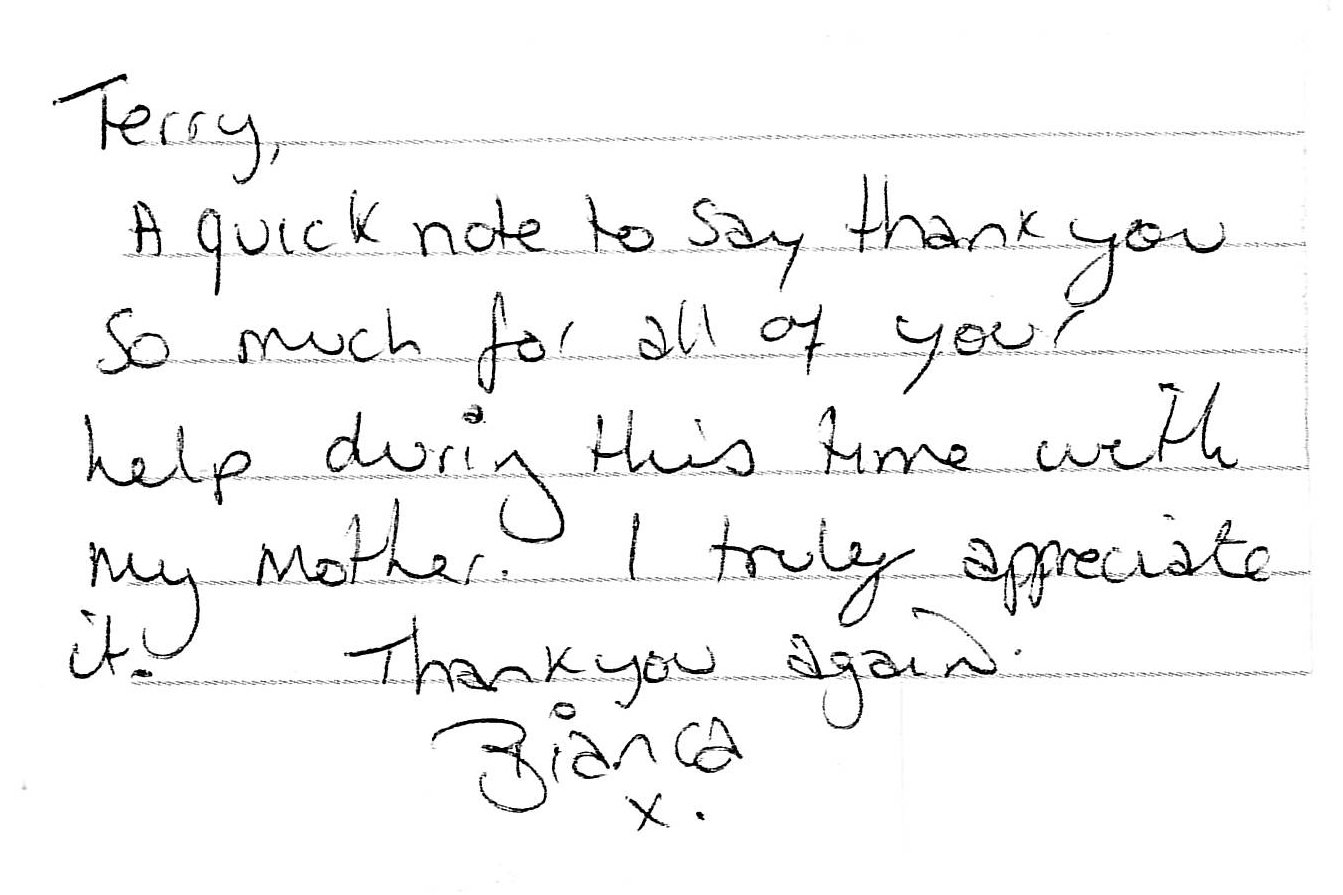 Terry,
A quick note to say thank you
so much for all of your
help during this time with
my mother. I truly appreciate
it. Thankyou again.
Bianca
x.